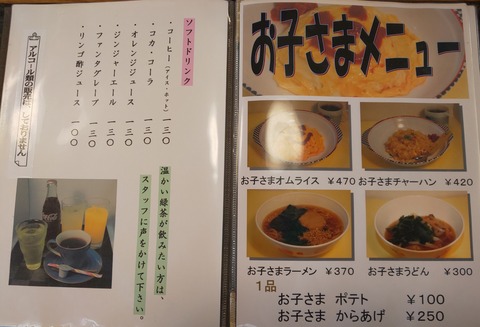 ソフトドリンク
・コーヒー(アイス・ホット) 一三〇
・コカ・コーラ 一三〇
・オレンジジュース 一三〇
・ジンジャーエール 一三〇
・ファンタグレープ 一三〇
・リンゴ酢ジュース 一〇〇
アルコール類の販売は しておりません
温かい緑茶が飲みたい方は、
スタッフに声をかけて下さい。
お子さまメニュー
お子さまオムライス ¥470
お子さまチャーハン ¥420
お子さまラーメン ¥370
お子さまうどん ¥300
1品
お子さま ポテト ¥100
お子さま からあげ ¥250